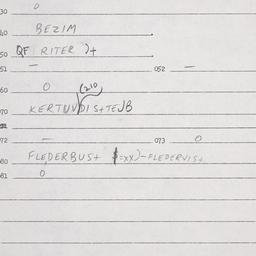 30 0
40 BEZIM
50 QF RITER )+
51 — 052 —
60 0 (210
70 KERTUV DISTTEJB
72 — 073 0
80 FLEDERBUS+ $=xx)-FLEDERVIS+
81 0